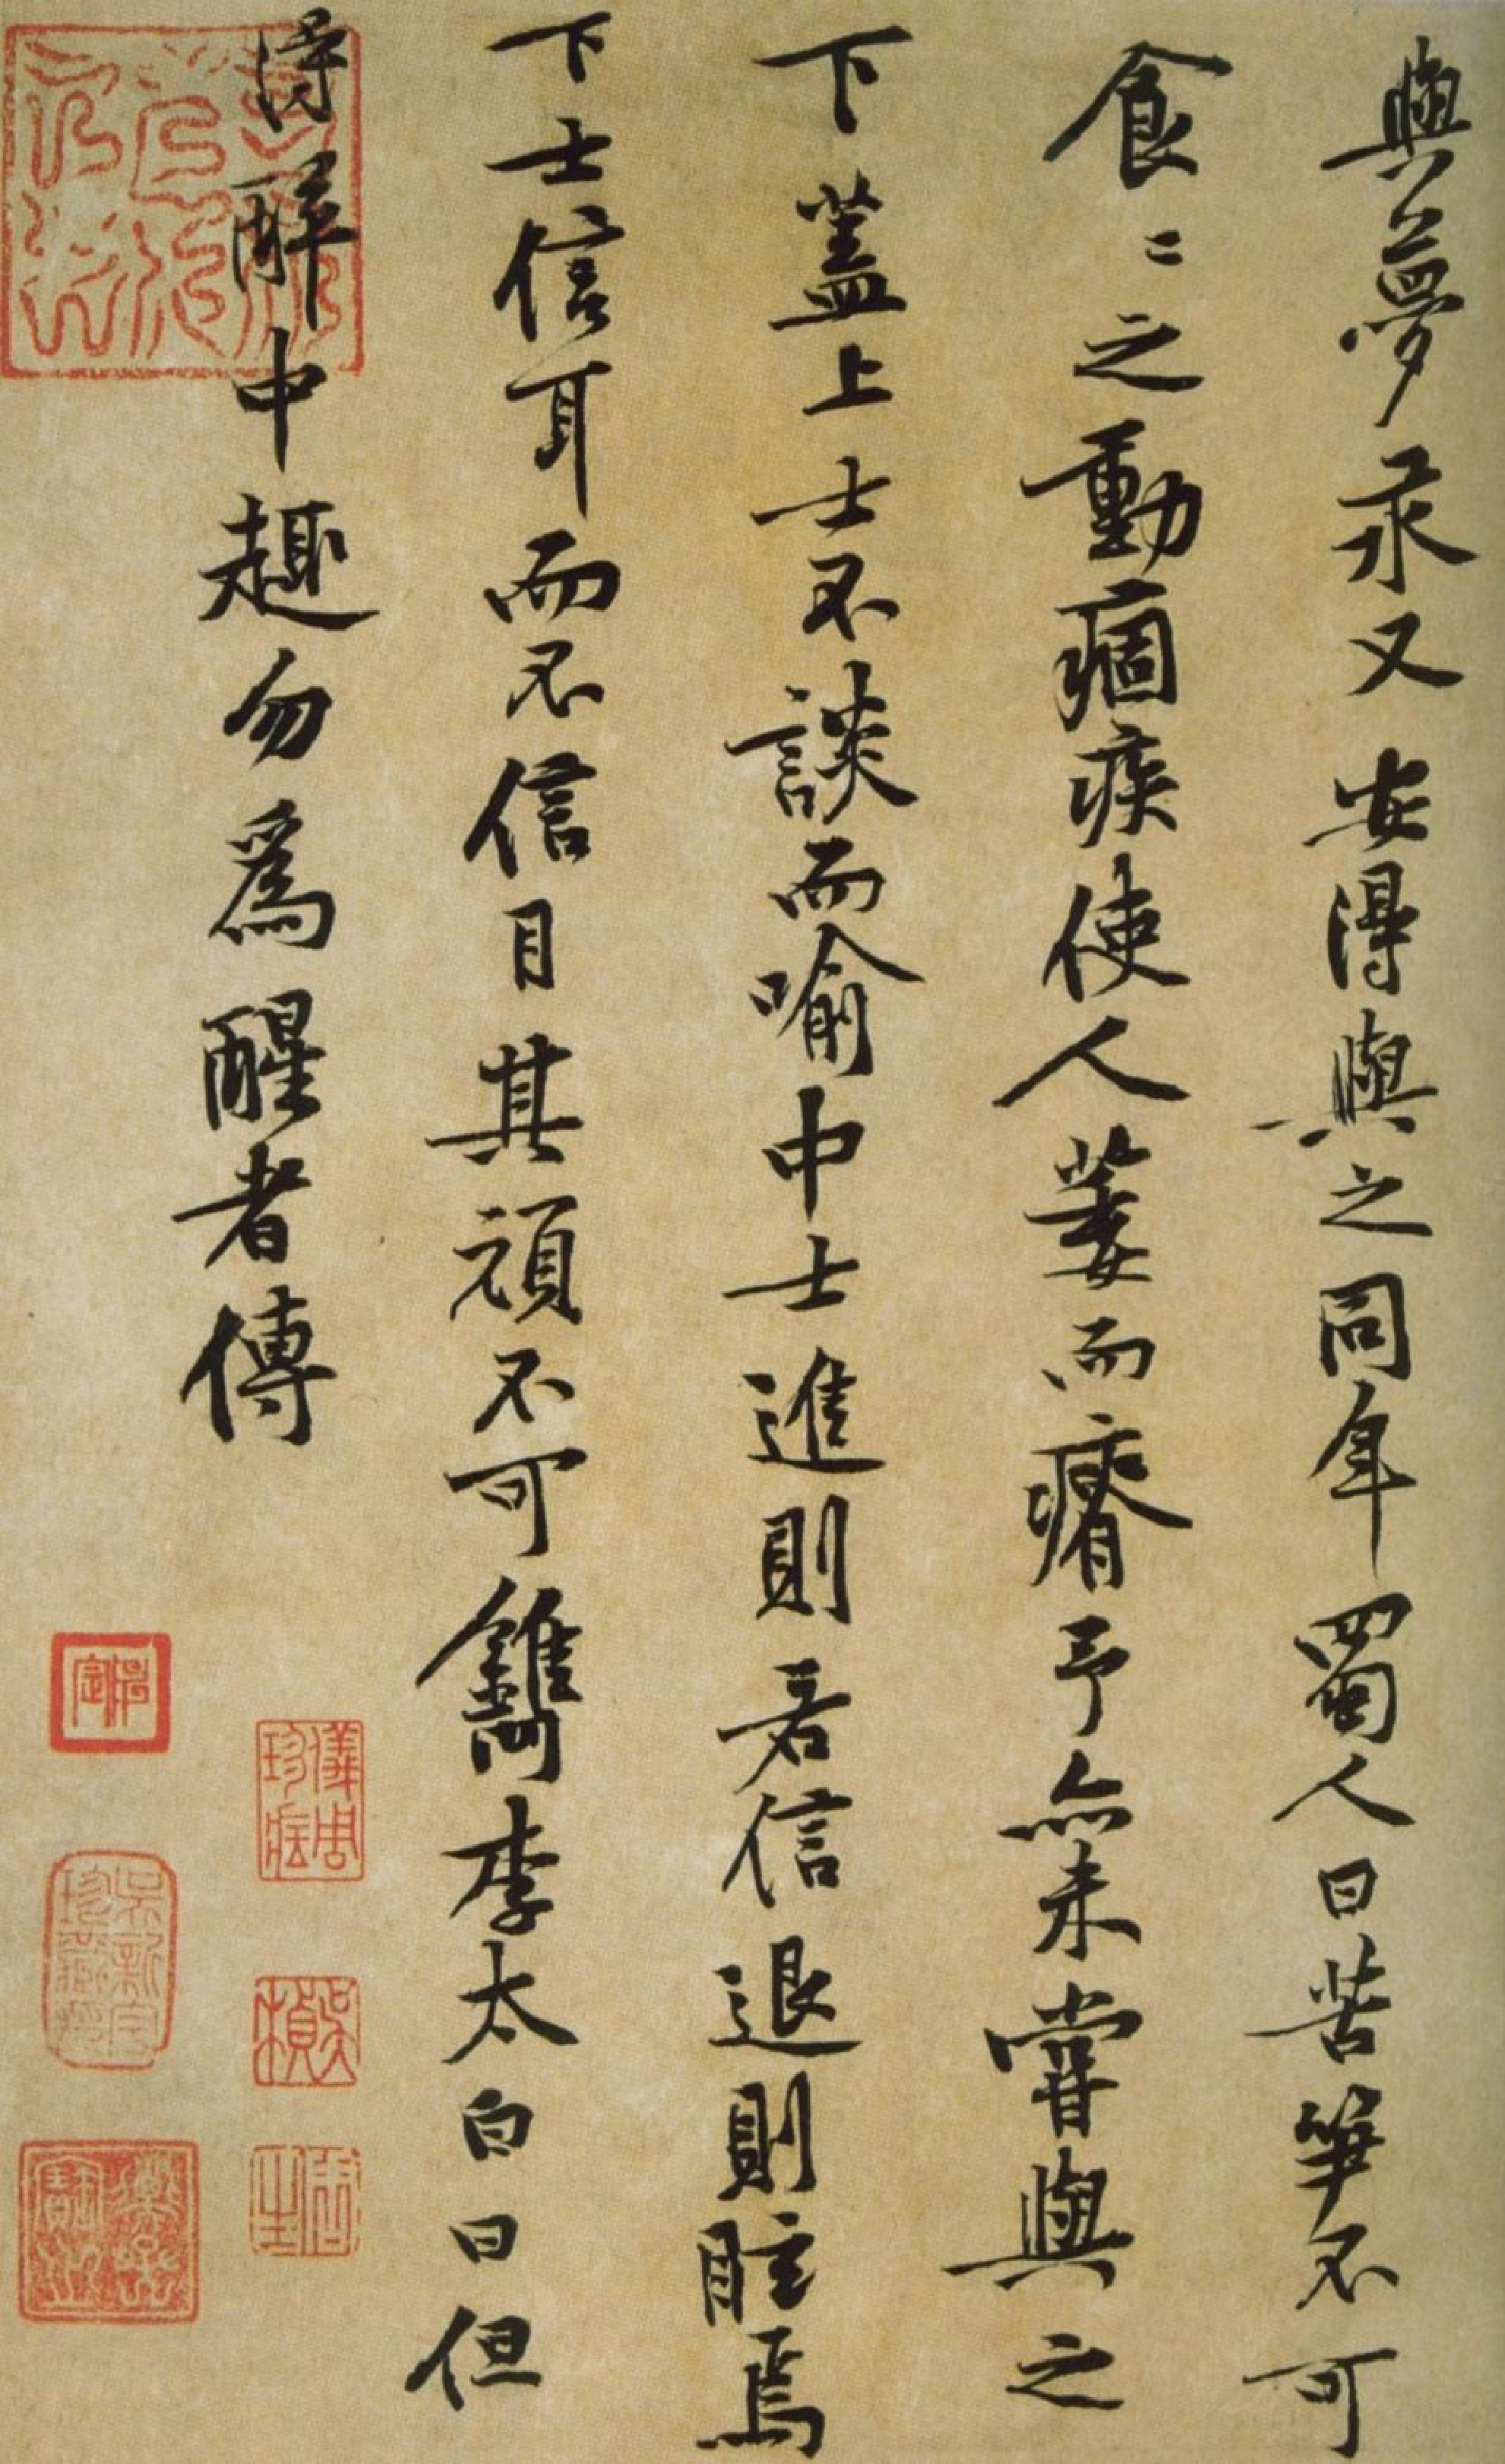 與夢汞又安得與之同年蜀人曰苦笋不可
食〻之動痼疾使人萎而瘠予亦未嘗與之
下蓋上士不談而喻中士進則若信退則眩焉
下士信耳而不信目其頑不可鐫李太白曰但
得醉中趣勿爲醒者傳
儀周珍蔵